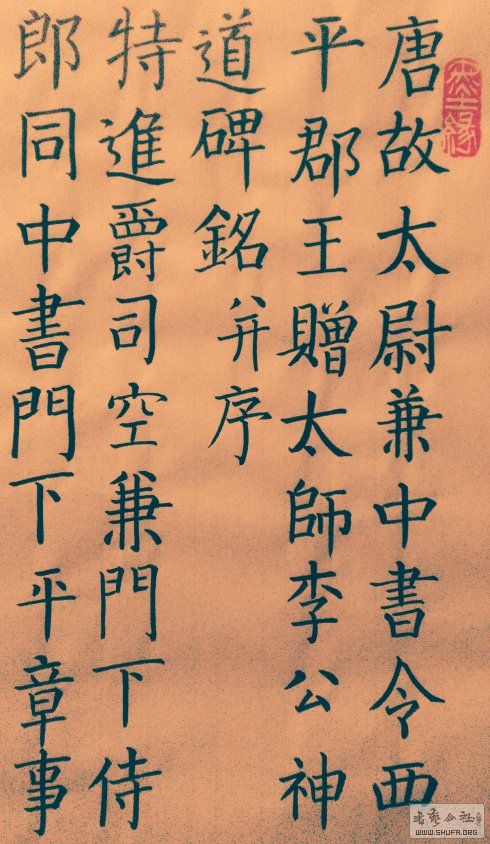 唐故太尉兼中書令西
平郡王贈太師李公神
道碑銘并序
特進爵司空兼門下侍
郎同中書門下平章事
WWW.SHUFA.ORG